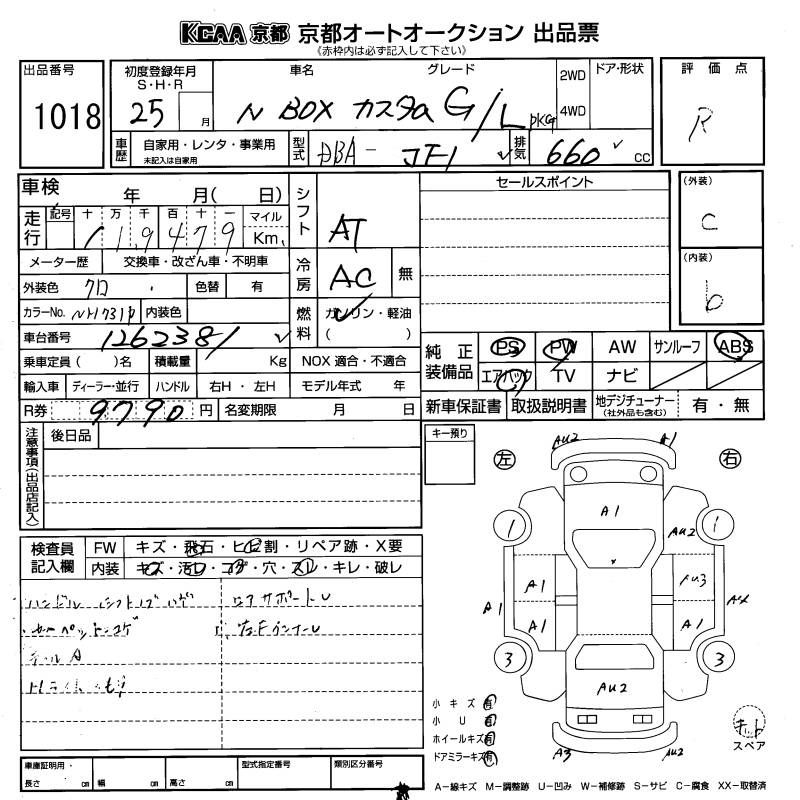 KCAA 京都 京都オートオークション 出品票
《赤枠内は必ず記入して下さい》
出品番号 1018
初度登録年月 S・H・R 25 月
車名 グレード N BOX カスタム G/L PKG
2WD 4WD
ドア・形状
評価点 R
車歴 自家用・レンタ・事業用 未記入は自家用
型式 DBA-JF1
排気 660 cc
車検 年 月( 日)
シフト AT
セールスポイント
(外装) C
走行 記号 十 万 千 百 十 一 マイル Km
1 1 9 4 7 9
メーター歴 交換車・改ざん車・不明車
冷房 AC 無
(内装) b
外装色 クロ 色替 有
カラーNo. NH731P 内装色
燃料 ガソリン・軽油 ( )
車台番号 1262381
純正装備品 PS PW AW サンルーフ ABS
エアバック TV ナビ
乗車定員( )名 積載量 Kg NOX 適合・不適合
輸入車 ディーラー・並行 ハンドル 右H・左H モデル年式 年
R券 9790 円 名変期限 月 日
新車保証書 取扱説明書 地デジチューナー (社外品も含む) 有・無
注意事項(出品店記入) 後日品
キー預り
左 右
AU2 A1
A1
1 AU2 1
A1 AU3
A1 A1 A1 A4
3 3
AU2
A3 AU2
検査員記入欄 FW キズ・飛石・ヒビ割・リペア跡・X要
内装 キズ・汚レ・コゲ・穴・スレ・キレ・破レ
ハンドル シフトノブ ハゲ
ロアサポートU
カーペット コゲ
左Fインナー U
小キズ 有
小U 有
ホイールキズ 有
ドアミラーキズ 有
スペア
車庫証明用・長さ cm 幅 cm 高さ cm
型式指定番号
類別区分番号
A−線キズ M−調整跡 U−凹み W−補修跡 S−サビ C−腐食 XX−取替済